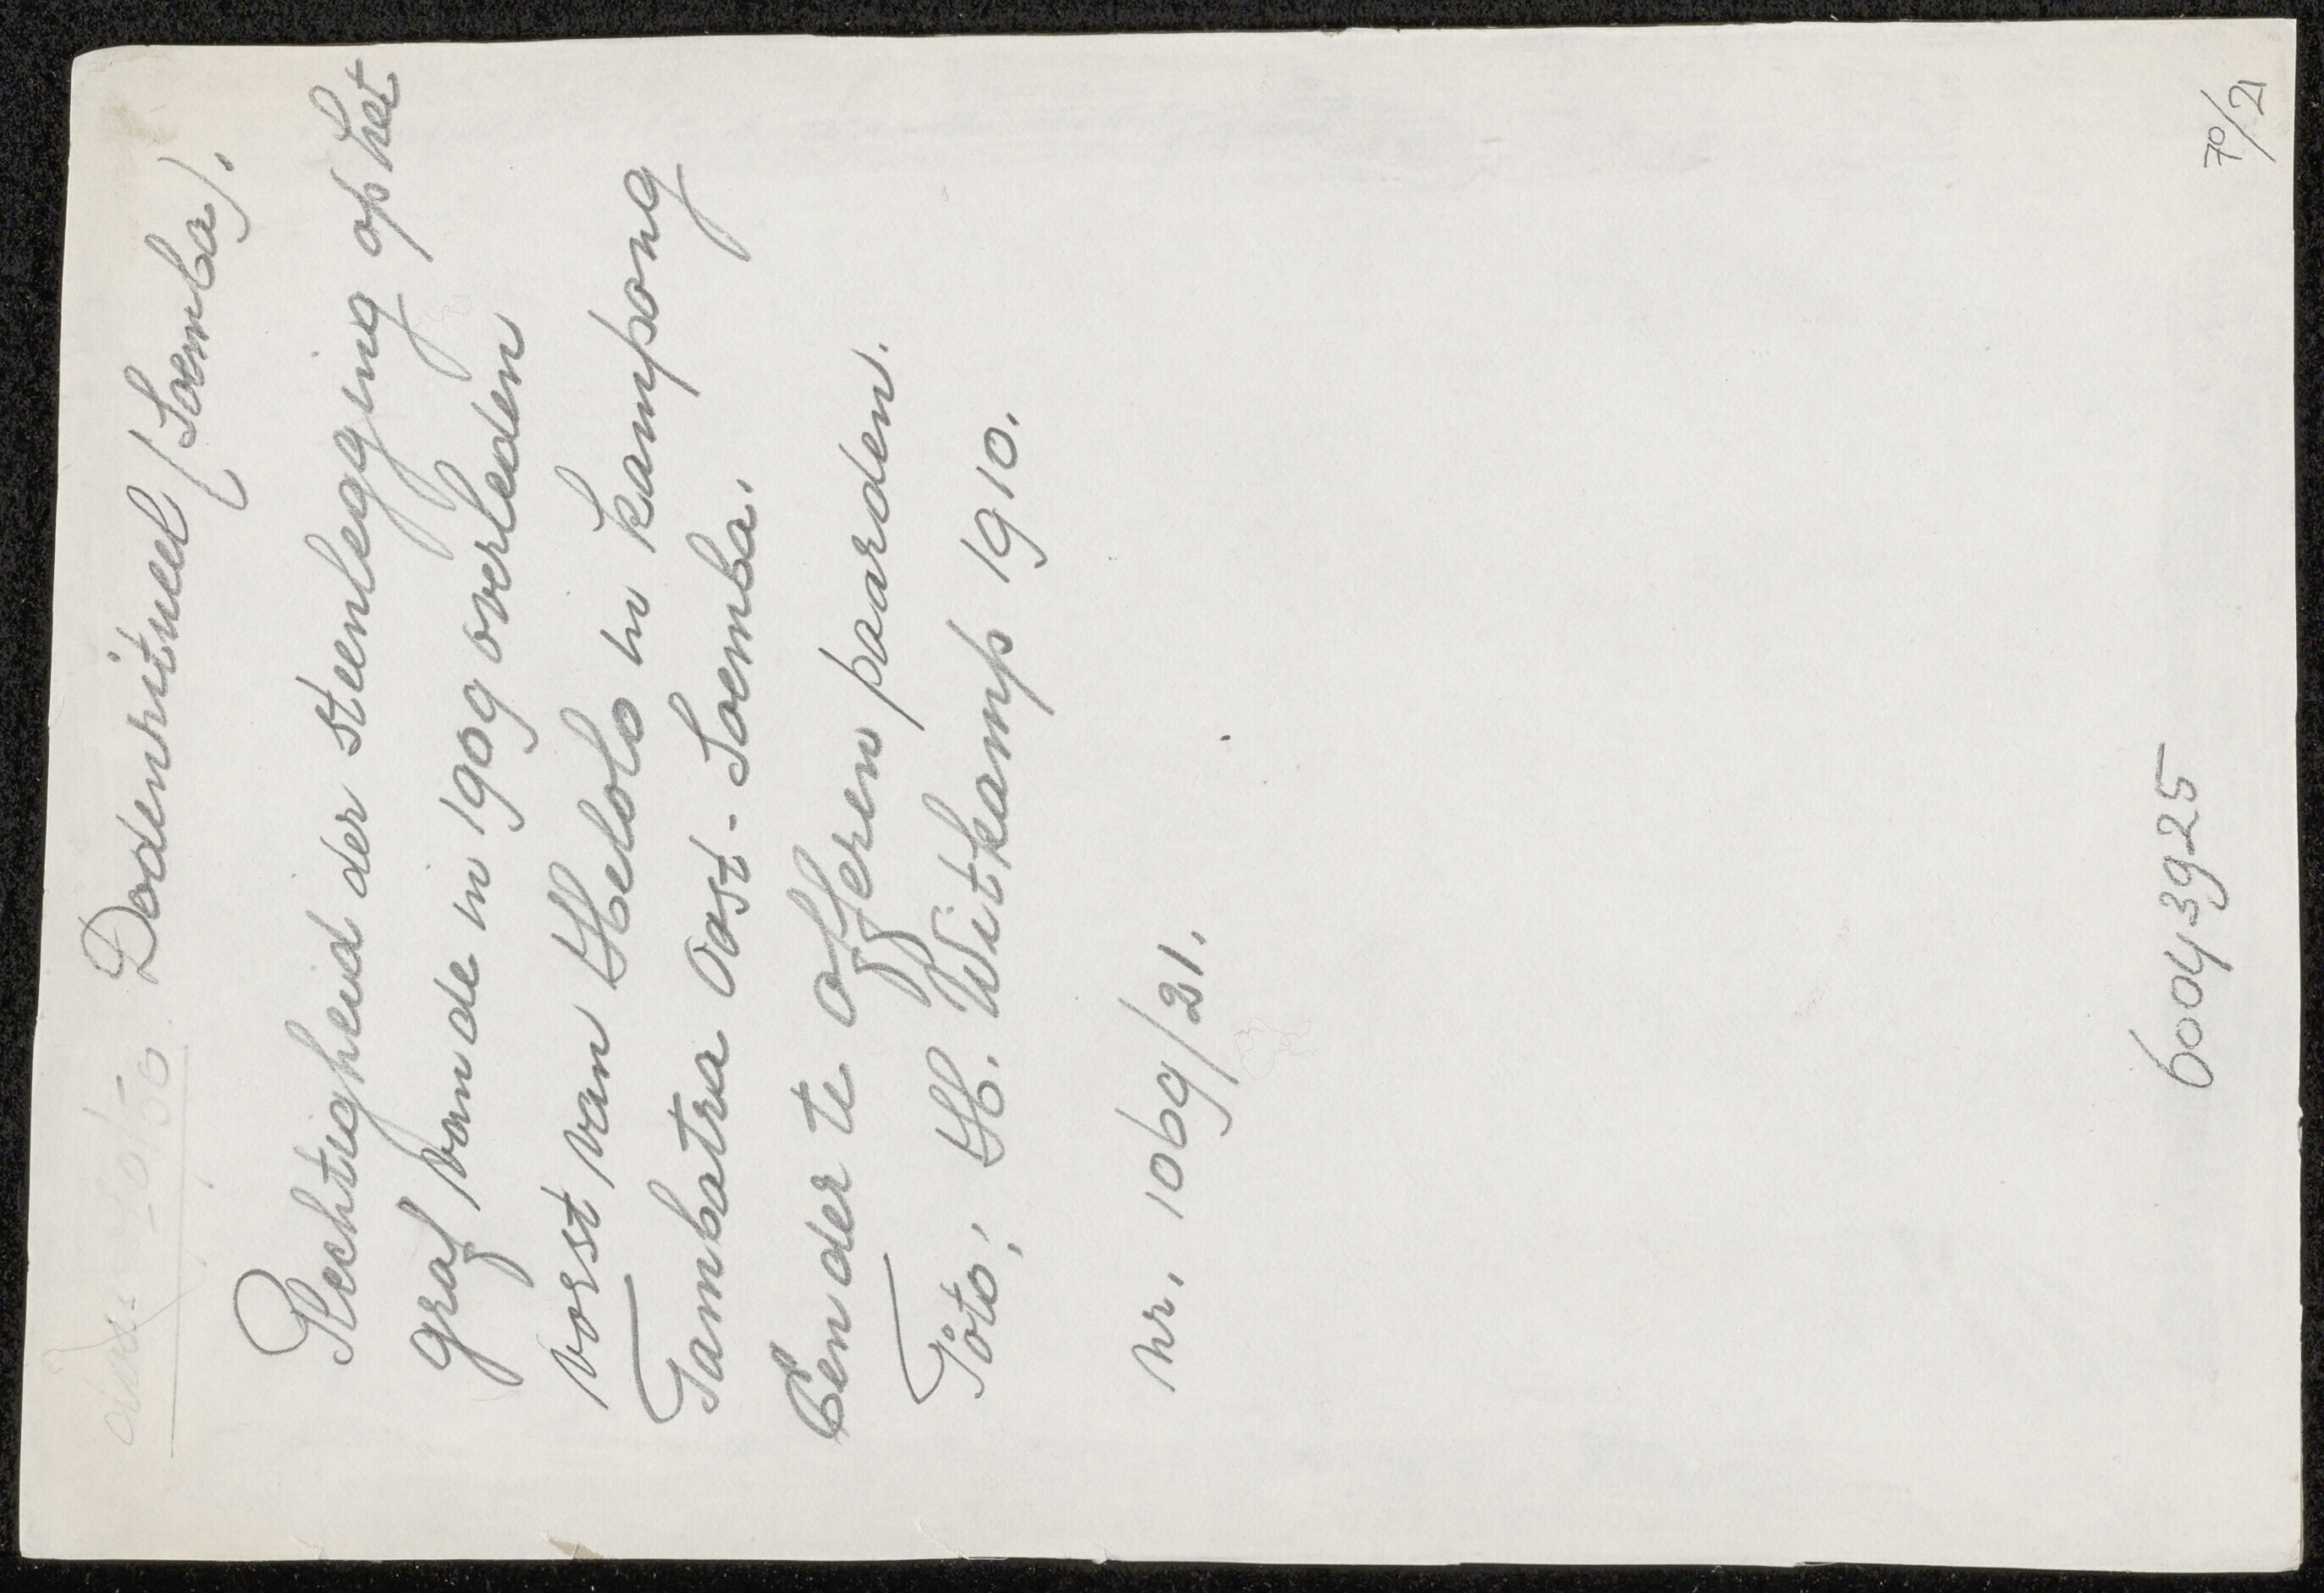 Dodenritueel (Soemba).
Plechtigheid der steenlegging op het
graf van de in 1909 overleden
vorst van Melolo in kampong
Tambatra Oost-Soemba.
Een der te offeren paarden.
Foto: H. Witkamp 1910.
nr. 1069/21.
60043925
70/21